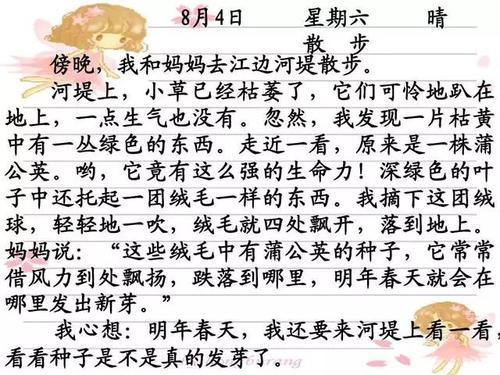 8月4日 星期六 晴
散 步
傍晚，我和妈妈去江边河堤散步。
河堤上，小草已经枯萎了，它们可怜地趴在
地上，一点生气也没有。忽然，我发现一片枯黄
中有一丛绿色的东西。走近一看，原来是一株蒲
公英。哟，它竟有这么强的生命力！深绿色的叶
子中还托起一团绒毛一样的东西。我摘下这团绒
球，轻轻地一吹，绒毛就四处飘开，落到地上。
妈妈说：“这些绒毛中有蒲公英的种子，它常常
借风力到处飘扬，跌落到哪里，明年春天就会在
哪里发出新芽。”
我心想：明年春天，我还要来河堤上看一看，
看看种子是不是真的发芽了。